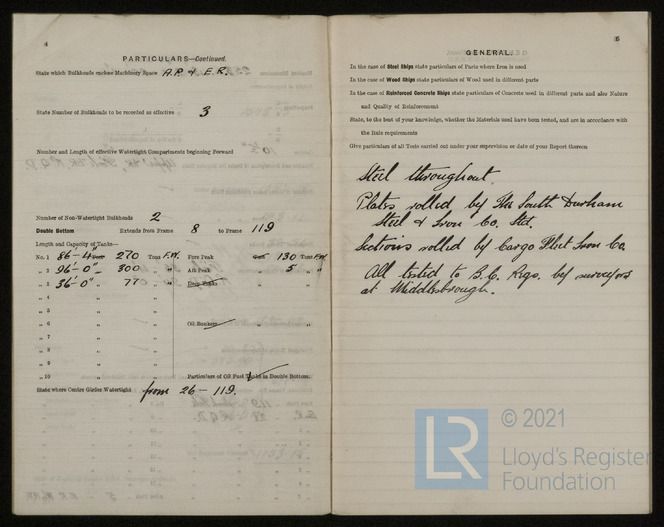 4
PARTICULARS—Continued.
State which Bulkheads enclose Machinery Space A.P. & E.R.
State Number of Bulkheads to be recorded as effective 3
Number and Length of effective Watertight Compartments beginning Forward
Number of Non-Watertight Bulkheads 2
Double Bottom Extends from Frame 8 to Frame 119
Length and Capacity of Tanks—
No. 1 86'-4" 270 Tons F.W. Fore Peak 130 Tons F.W.
„ 2 96'-0" „ 300 „ „ Aft Peak 5 „ „
„ 3 36'-0" „ 77 „ „ Deep Tanks
„ 4 „ „
„ 5 „ „
„ 6 „ „ Oil Bunkers
„ 7 „ „
„ 8 „ „
„ 9 „ „
„ 10 „ „ Particulars of Oil Fuel Tanks in Double Bottom.
State where Centre Girder Watertight from 26 - 119.
5
GENERAL.
In the case of Steel Ships state particulars of Parts where Iron is used
In the case of Wood Ships state particulars of Wood used in different parts
In the case of Reinforced Concrete Ships state particulars of Concrete used in different parts and also Nature
and Quality of Reinforcement
State, to the best of your knowledge, whether the Materials used have been tested, and are in accordance with
the Rule requirements
Give particulars of all Tests carried out under your supervision or date of your Report thereon
Steel throughout.
Plates rolled by The South Durham
Steel & Iron Co. Ltd.
Sections rolled by Cargo Fleet Iron Co.
All tested to B.C. Reqs. by surveyors
at Middlesbrough.
LR © 2021
Lloyd's Register
Foundation